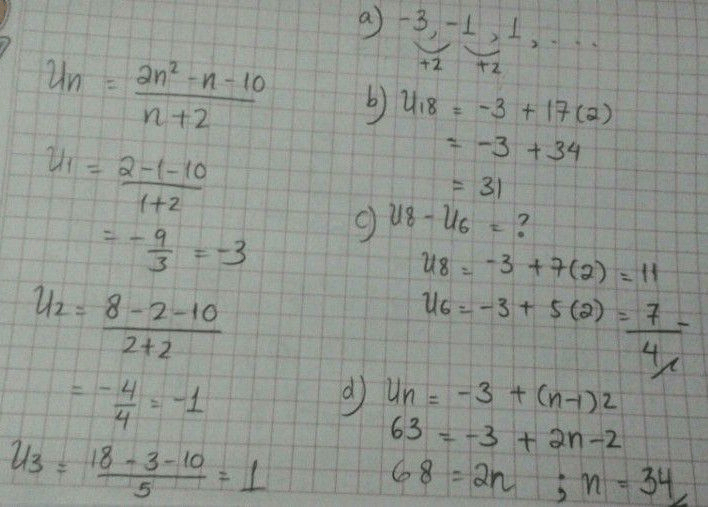 Un = 2n² - n - 10 / n + 2
U1 = 2 - 1 - 10 / 1 + 2
= - 9/3 = -3
U2 = 8 - 2 - 10 / 2 + 2
= - 4/4 = -1
U3 = 18 - 3 - 10 / 5 = 1
a) -3, -1, 1, ....
+2 +2
b) U18 = -3 + 17(2)
= -3 + 34
= 31
c) U8 - U6 = ?
U8 = -3 + 7(2) = 11
U6 = -3 + 5(2) = 7 -
4
d) Un = -3 + (n-1)2
63 = -3 + 2n - 2
68 = 2n ; n = 34